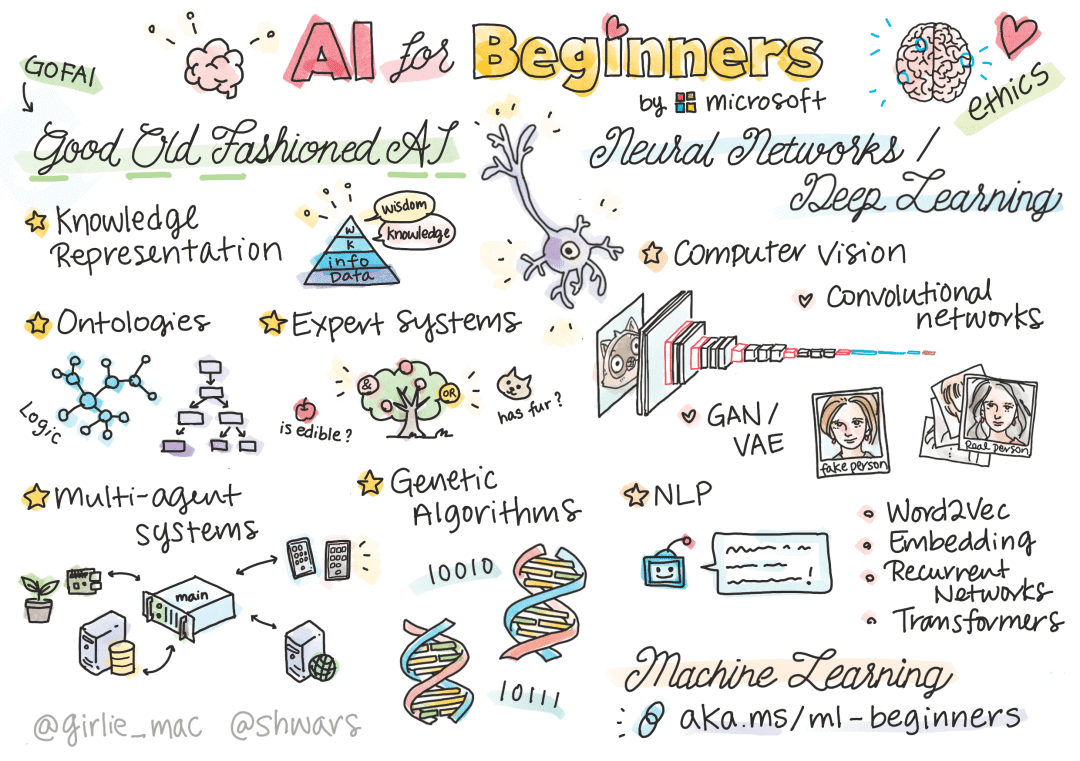 AI for Beginners
by microsoft
GOFAI
Good Old Fashioned AI
Knowledge
Representation
wisdom
knowledge
W
K
info
Data
Ontologies
Logic
Expert systems
&
OR
is edible?
has fur?
Multi-agent
systems
main
Genetic
Algorithms
10010
10111
ethics
Neural Networks /
Deep Learning
Computer vision
Convolutional
networks
GAN /
VAE
fake person
Real person
NLP
!
Word2Vec
Embedding
Recurrent
Networks
Transformers
Machine Learning
aka.ms/ml-beginners
@girlie_mac @shwars